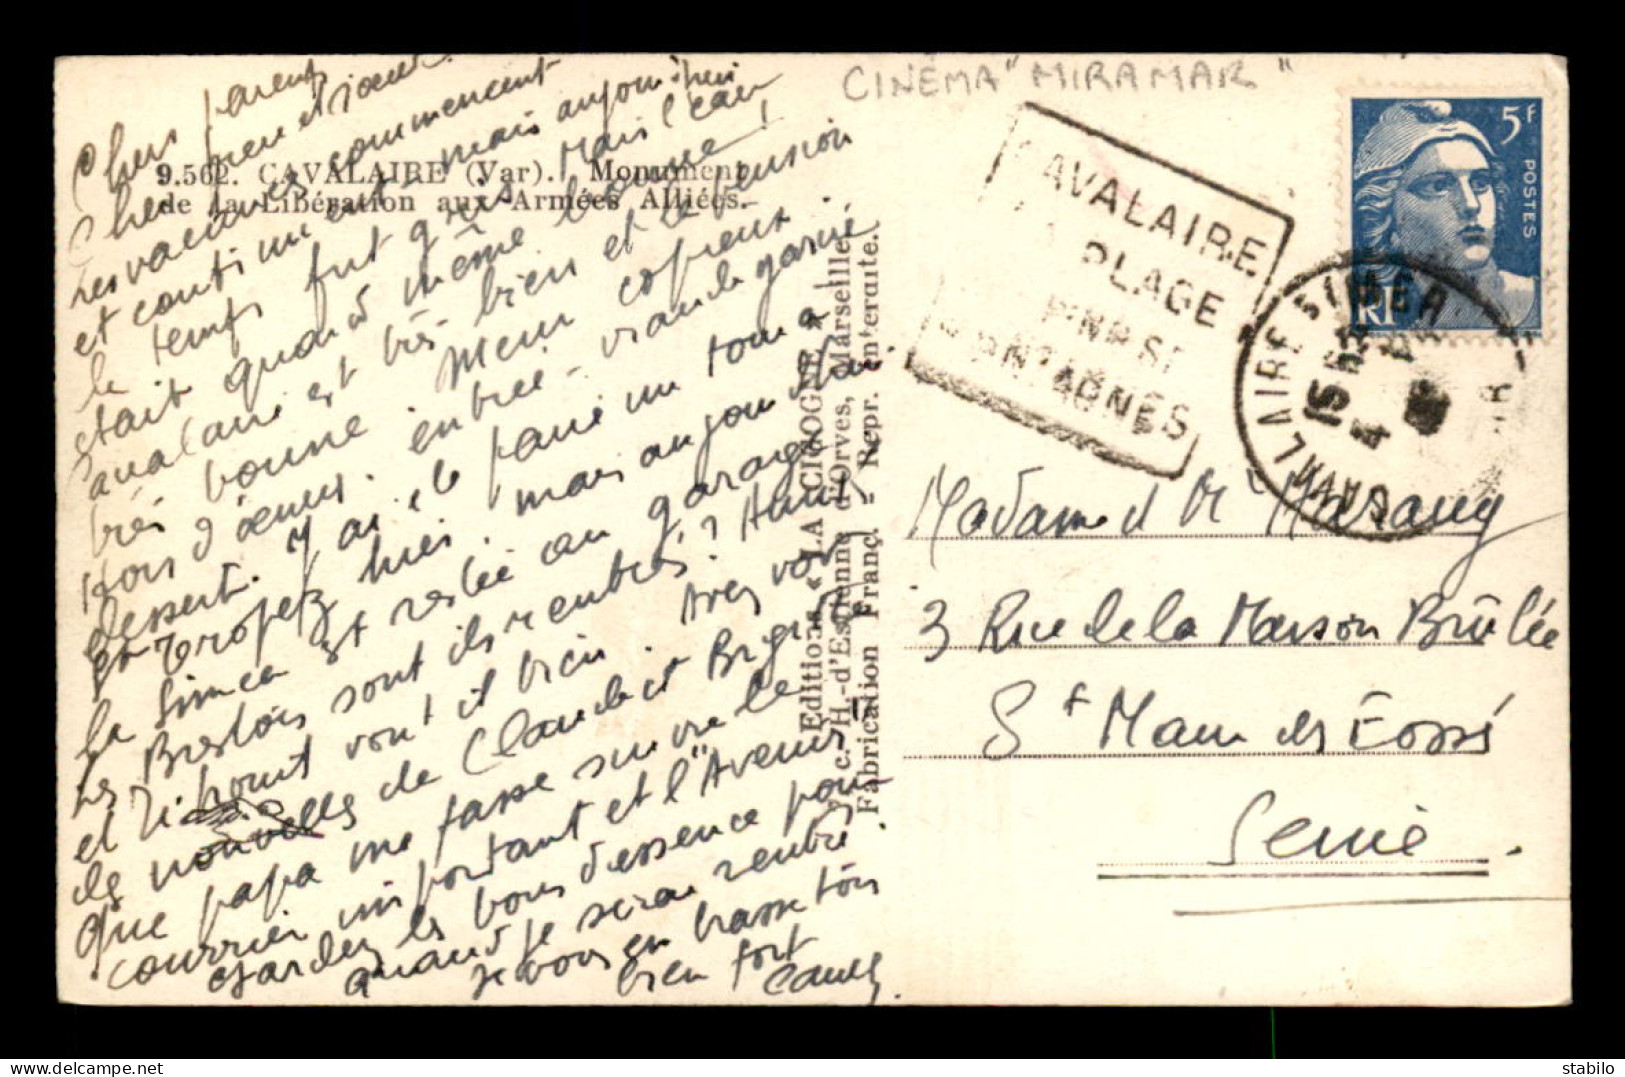 Chers parents
Cher et sœur
Les vacances commencent
et continuent mais aujourd'hui
le temps fut gris. Mais l'eau
était quand même bonne !
Cavalaire est très bien et la pension
très bonne. Menu copieux
Hors d'œuvres. entrée - viande garnie
dessert. J'ai été faire un tour à
St Tropez hier. mais aujourd'hui
la Simca est restée au garage
Les Brestois sont ils rentrés ?
et vont il bien. Avez vous
des nouvelles de Claude et Brigitte
Que papa me fasse suivre le
courrier important et l'"Avenir"
Gardez les bons d'essence pour
quand je serai rentré
Je vous embrasse tous
bien fort
9.562. CAVALAIRE (Var). Monument
de la Libération aux Armées Alliées.
Editions « LA CIGOGNE »
c. H.-d'Estienne d'Orves, Marseille
Fabrication Franç. - Repr. interdite.
CINÉMA "MIRAMAR"
CAVALAIRE
PLAGE
PINS ET
MONTAGNES
CAVALAIRE S/MER
15 H
4
VAR
5F
POSTES
RF
Madame et Mr Marany
3 Rue de la Maison Brûlée
St Maur des Fossés
Seine.
stabilo
delcampe.net